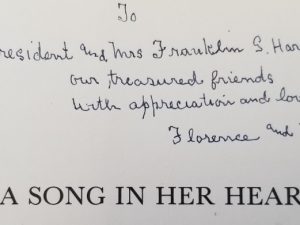 To
resident and Mrs Franklin S. Har
our treasured friends
with appreciation and lov
Florence and
A SONG IN HER HEAR